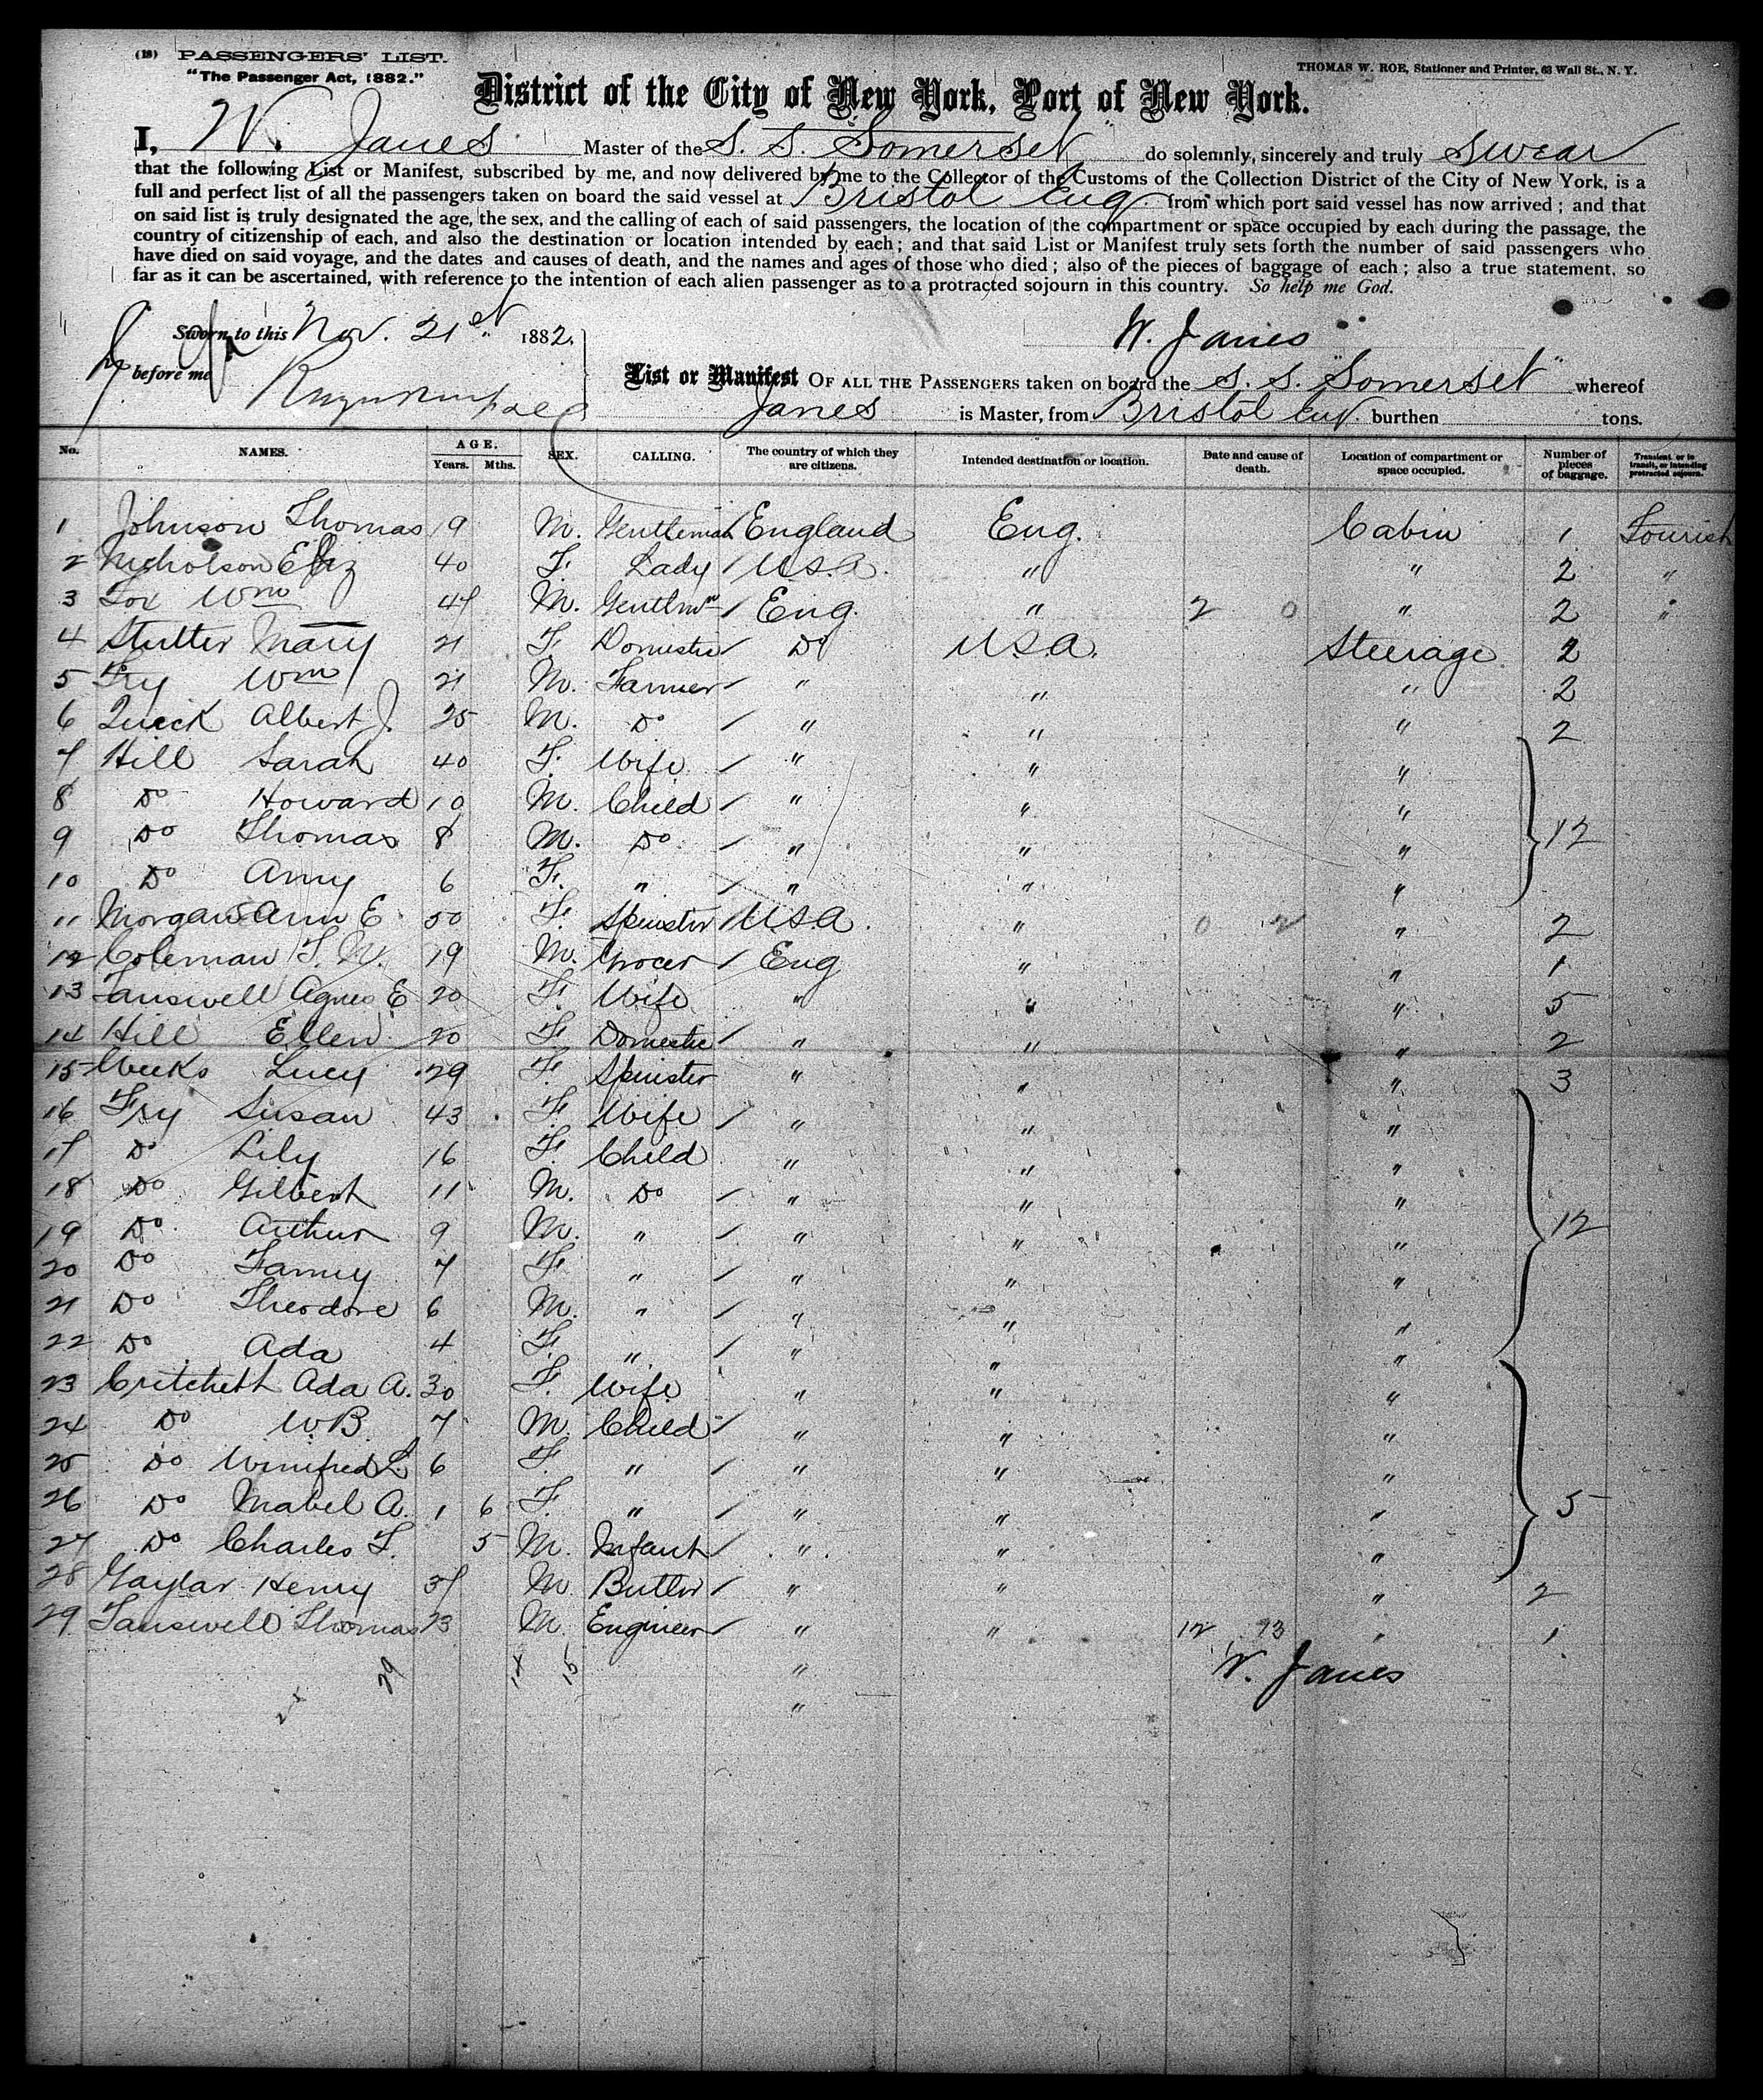 (18) PASSENGERS' LIST.
"The Passenger Act, 1882."
THOMAS W. ROE, Stationer and Printer, 63 Wall St., N. Y.
District of the City of New York, Port of New York.
I, W. Janes Master of the S. S. Somerset do solemnly, sincerely and truly swear
that the following List or Manifest, subscribed by me, and now delivered by me to the Collector of the Customs of the Collection District of the City of New York, is a
full and perfect list of all the passengers taken on board the said vessel at Bristol Eng from which port said vessel has now arrived; and that
on said list is truly designated the age, the sex, and the calling of each of said passengers, the location of the compartment or space occupied by each during the passage, the
country of citizenship of each, and also the destination or location intended by each; and that said List or Manifest truly sets forth the number of said passengers who
have died on said voyage, and the dates and causes of death, and the names and ages of those who died; also of the pieces of baggage of each; also a true statement, so
far as it can be ascertained, with reference to the intention of each alien passenger as to a protracted sojourn in this country. So help me God.
Sworn to this Nov. 21st 1882. W. Janes
before me
List or Manifest OF ALL THE PASSENGERS taken on board the S. S. "Somerset" whereof
Janes is Master, from Bristol Eng. burthen tons.
No. NAMES. AGE. Years. Mths. SEX. CALLING. The country of which they are citizens. Intended destination or location. Date and cause of death. Location of compartment or space occupied. Number of pieces of baggage. Transient, or in transit, or intending protracted sojourn.
1 Johnson Thomas 19 M. Gentleman / England Eng. Cabin 1 Tourist
2 Nicholson Eliz 40 F. Lady / U.S.A. " " 2 "
3 Fox Wm 47 M. Gentlmn / Eng. " 2 0 " 2 "
4 Stutter Mary 21 F. Domestic / Do U.S.A. Steerage 2
5 Fry Wm 21 M. Farmer / " " " 2
6 Quick Albert J. 25 M. Do / " " " 2
7 Hill Sarah 40 F. Wife / " " "
8 Do Howard 10 M. Child / " " "
9 Do Thomas 8 M. Do / " " " 12
10 Do Amy 6 F. " / " " "
11 Morgan Ann E. 50 F. Spinster / U.S.A. " 0 2 " 2
12 Coleman F. W. 19 M. Grocer / Eng " " 1
13 Tanswell Agnes E 20 F. Wife " " " 5
14 Hill Ellen 20 F. Domestic / " " " 2
15 Weeks Lucy 29 F. Spinster " " " 3
16 Fry Susan 43 F. Wife / " " "
17 Do Lily 16 F. Child " " "
18 Do Gilbert 11 M. Do / " " "
19 Do Arthur 9 M. " / " " " 12
20 Do Fanny 7 F. " / " " "
21 Do Theodore 6 M. " / " " "
22 Do Ada 4 F. " / " " "
23 Critchett Ada A. 30 F. Wife " " "
24 Do W.B. 7 M. Child / " " "
25 Do Winifred L 6 F. " / " " "
26 Do Mabel A. 1 6 F. " / " " " 5
27 Do Charles F. 5 M. Infant / " " "
28 Gaylar Henry 37 M. Butler / " " " 2
29 Tanswell Thomas 23 M. Engineer / " " 12 13 " 1
29 14 15 " W. Janes
"